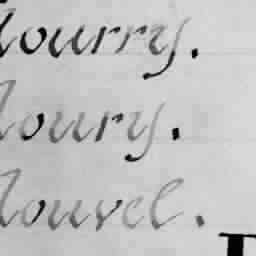 lourry.
loury.
louvel.